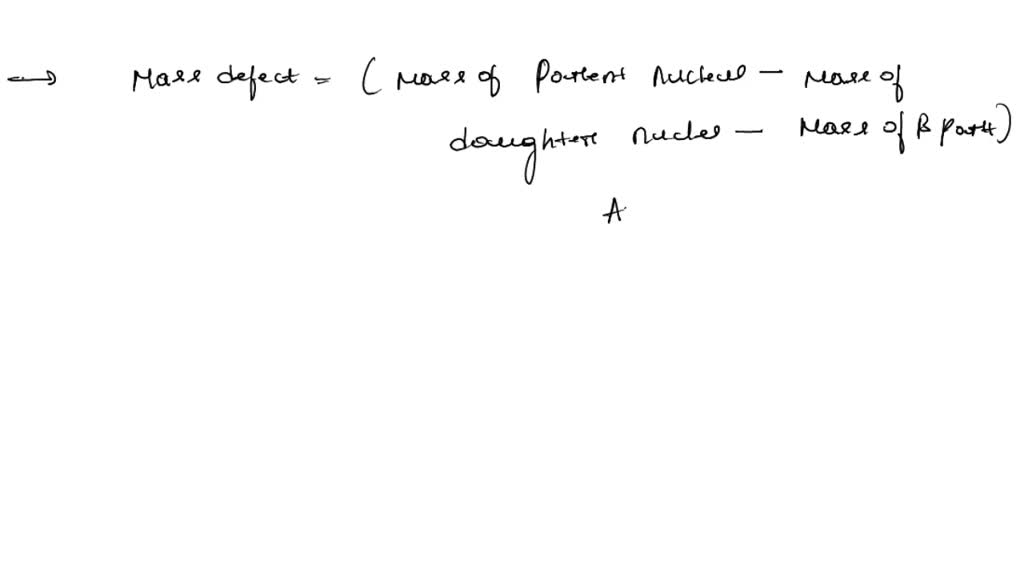 → Mass defect = (Mass of Parent nucleus − Mass of
daughter nucleus − Mass of β part)
A